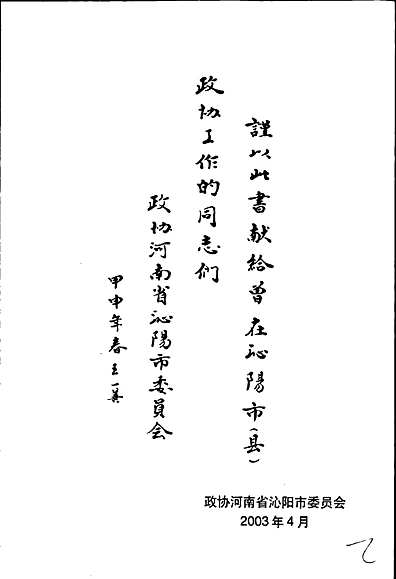 謹以此書献给曾在沁陽市(县)
政协工作的同志们
政协河南省沁陽市委員会
甲申年春王一冀
政协河南省沁阳市委员会
2003年4月